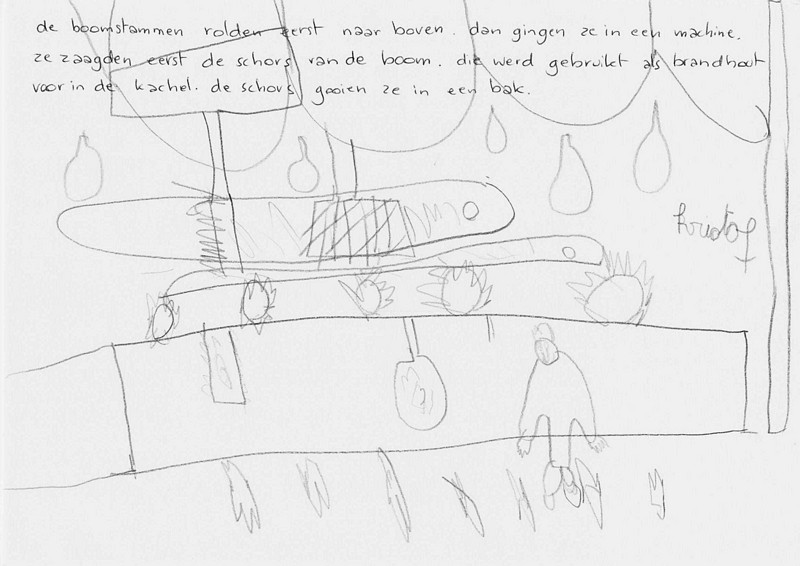 de boomstammen rolden eerst naar boven. dan gingen ze in een machine.
ze zaagden eerst de schors van de boom. die werd gebruikt als brandhout
voor in de kachel. de schors gooien ze in een bak.
kristof